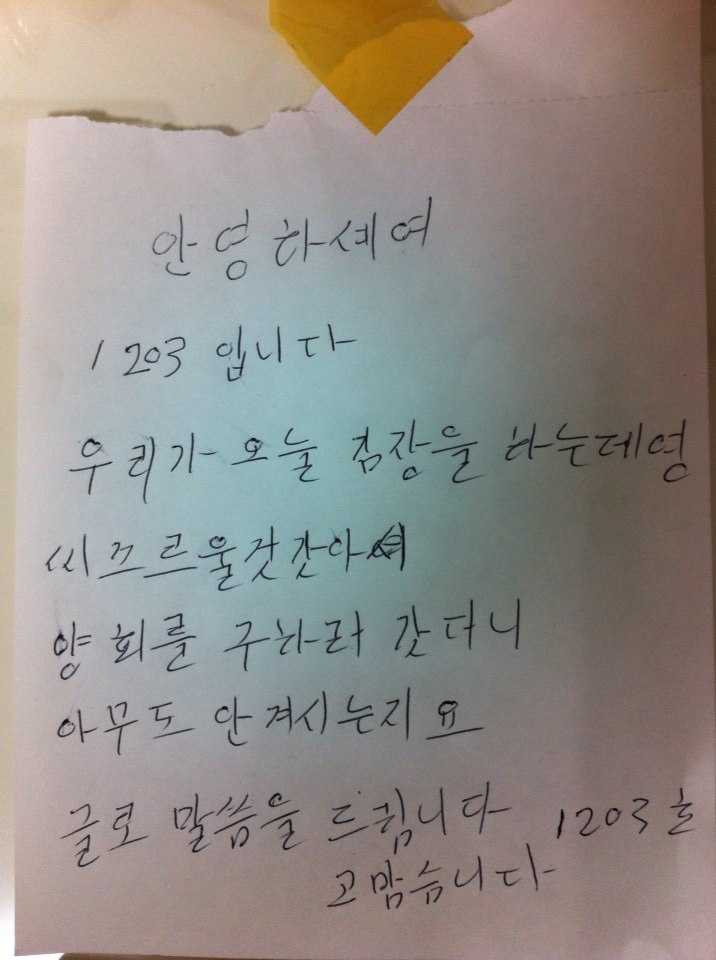 안영하세여
1203 입니다
우리가 오늘 김장을 하는데영
씨끄르울갓갓아서
양회를 구하라 갓더니
아무도 안겨시는지요
글로 말씀을 드림니다 1203호
고맘습니다